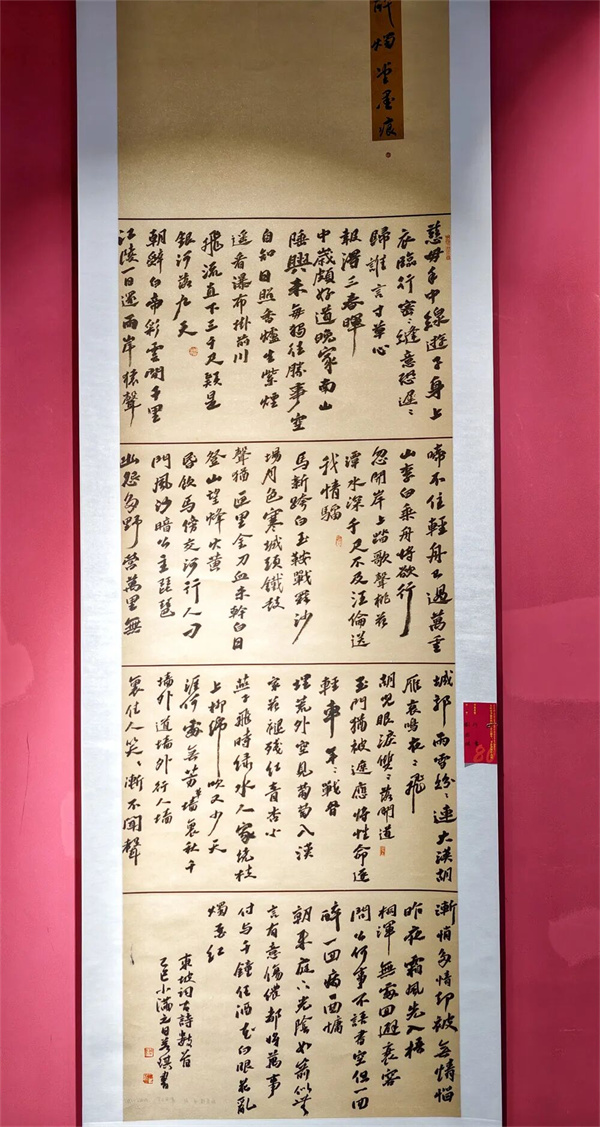 燭堂墨痕
慈母手中線遊子身上
衣臨行密〻縫意恐遲〻
歸誰言寸草心
報得三春暉
中歲頗好道晚家南山
陲興來每獨往勝事空
自知日照香爐生紫煙
遙看瀑布掛前川
飛流直下三千尺疑是
銀河落九天
朝辭白帝彩雲間千里
江陵一日還兩岸猿聲
啼不住輕舟已過萬重
山李白乘舟將欲行
忽聞岸上踏歌聲桃花
潭水深千尺不及汪倫送
我情騮
馬新跨白玉鞍戰罷沙
場月色寒城頭鐵鼓
聲猶匣里金刀血未幹白日
登山望烽火黃
昏飲馬傍交河行人刁
鬥風沙暗公主琵琶
幽怨多野營萬里無
城郭雨雪紛〻連大漠胡
雁哀鳴夜〻飛
胡兒眼淚雙〻落聞道
玉門猶被遮應將性命逐
輕車年〻戰骨
埋荒外空見蒲萄入漢
家花褪殘紅青杏小
燕子飛時綠水人家繞枝
上柳綿吹又少天
涯何處無芳草墻裏秋千
墻外道墻外行人墻
裏佳人笑〻漸不聞聲
漸悄多情卻被無情惱
昨夜霜風先入梧
桐渾無處回避衰容
問公何事不語書空但一回
醉一回病一回慵
朝來庭下光陰如箭似無
言有意傷儂都將萬事
付與千鐘任酒花白眼花亂
燭委紅
東坡詞古詩數首
乙巳小滿之日書